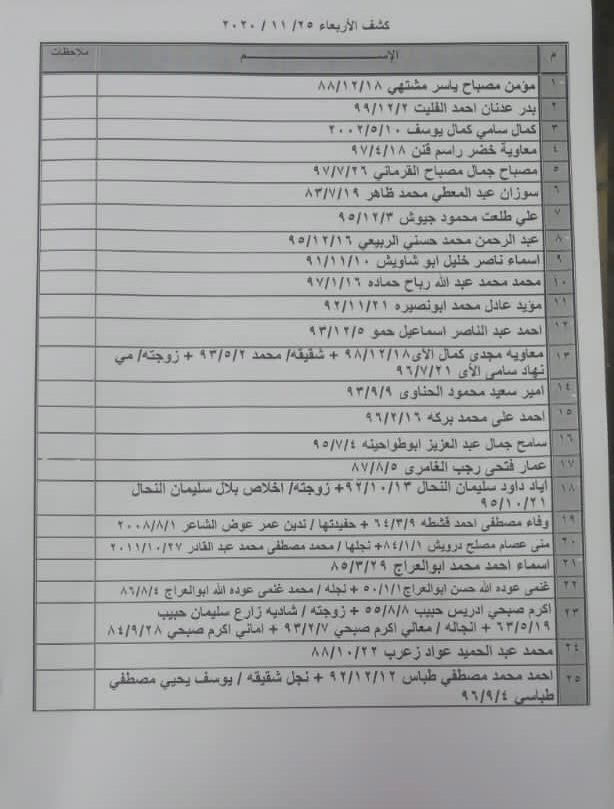 كشف الأربعاء ٢٥/ ١١ / ٢٠٢٠
م الإســـــــم ملاحظات
١ مؤمن مصباح ياسر مشتهي ٨٨/١٢/١٨
٢ بدر عدنان احمد الفليت ٩٩/١٢/٢
٣ كمال سامي كمال يوسف ٢٠٠٢/٥/١٠
٤ معاوية خضر راسم قنن ٩٧/٤/١٨
٥ مصباح جمال مصباح القرماني ٩٧/٧/٢٦
٦ سوزان عبد المعطي محمد ظاهر ٨٣/٧/١٩
٧ علي طلعت محمود جيوش ٩٥/١٢/٣
٨ عبد الرحمن محمد حسني الربيعي ٩٥/١٢/١٦
٩ اسماء ناصر خليل ابو شاويش ٩١/١١/١٠
١٠ محمد محمد عبد الله رباح حماده ٩٧/١/١٦
١١ مؤيد عادل محمد ابونصيره ٩٢/١١/٢١
١٢ احمد عبد الناصر اسماعيل حمو ٩٣/١٢/٥
١٣ معاويه مجدى كمال الأى٩٨/١٢/١٨ + شقيقه/ محمد ٩٣/٥/٢ + زوجته/ مي
نهاد سامى الأى ٩٦/٧/٢١
١٤ امير سعيد محمود الحناوى ٩٣/٩/٩
١٥ احمد على محمد بركه ٩٦/٢/١٦
١٦ سامح جمال عبد العزيز ابوطواحينه ٩٥/٧/٤
١٧ عمار فتحى رجب الغامرى ٨٧/٨/٥
١٨ اياد داود سليمان النحال ٩٢/١٠/١٣+ زوجته/ اخلاص بلال سليمان النحال
٩٥/١٠/٢١
١٩ وفاء مصطفى احمد قشطه ٦٤/٣/٩ + حفيدتها / ندين عمر عوض الشاعر ٢٠٠٨/٨/١
٢٠ منى عصام مصلح درويش ٨٤/١/١+ نجلها / محمد مصطفى محمد عبد القادر ٢٠١١/١٠/٢٧
٢١ اسماء احمد محمد ابوالعراج ٨٥/٣/٢٩
٢٢ غنمى عوده الله حسن ابوالعراج٥٠/١/١ + نجله / محمد غنمى عوده الله ابوالعراج ٨٦/٨/٤
٢٣ اكرم صبحي ادريس حبيب ٥٥/٨/٨ + زوجته / شاديه زارع سليمان حبيب
٦٣/٥/١٩ + انجاله / معالي اكرم صبحي ٩٣/٢/٧ + اماني اكرم صبحي ٨٤/٩/٢٨
٢٤ محمد عبد الحميد عواد زعرب ٨٨/١٠/٢٢
٢٥ احمد محمد مصطفي طباس ٩٢/١٢/١٢ + نجل شقيقه / يوسف يحيي مصطفي
طباسي ٩٦/٩/٤